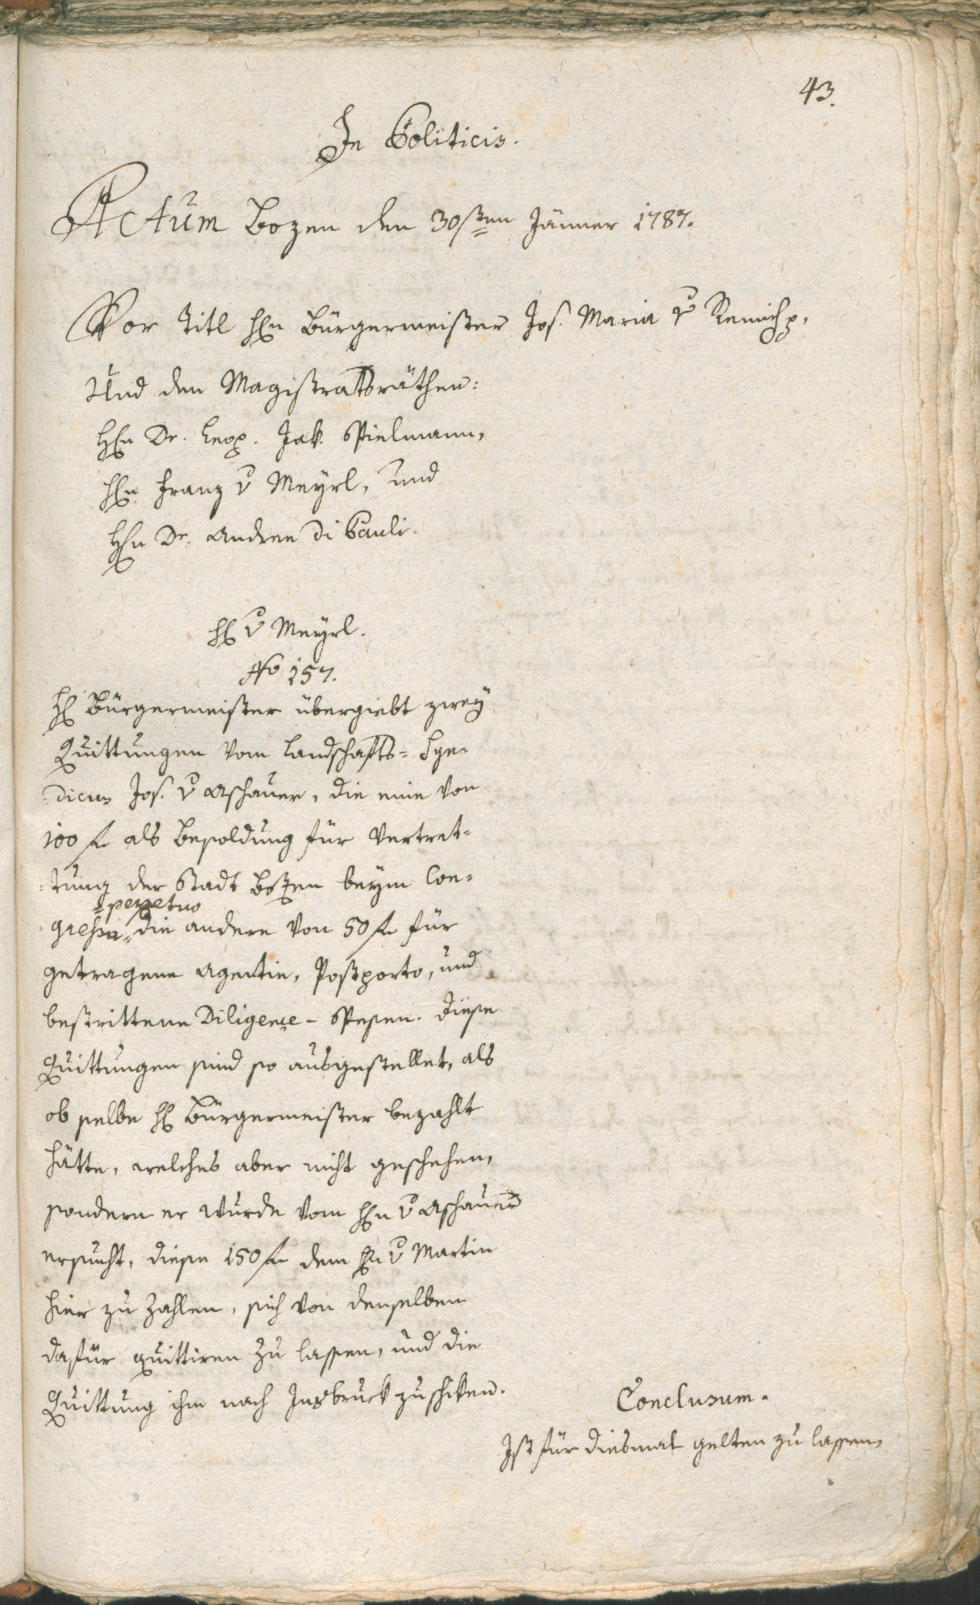 43.
In Politicis.
Actum Bozen den 30sten Jänner 1787.
Vor Titl H̅n̅ Bürgermeister Jos. Maria v Remich p,
Und den Magistratsräthen:
Hln Dr. Leop. Jak. Spielmann,
Hln Franz v Meyrl, und
Hln Dr. Andree Di Pauli.
Hl v Meyrl.
No 157.
Hl Bürgermeister übergiebt zwey
Quittungen vom Landschafts- Syn-
dicus Jos. v Aschauer, die eine von
100 f als Besoldung für Vertret-
tung der Stadt Bozen beym Con-
perpetuo
gressu, die andere von 50 f für
getragene Agentie, Postporto, und
bestrittene Diligence- Spesen. Diese
Quittungen sind so ausgestellet, als
ob selbe Hl Bürgermeister bezahlt
hätte, welches aber nicht geschehen,
sondern er wurde vom Hln v Aschauer
ersucht, diese 150 f dem Hln v Martin
hier zu zahlen, sich von denselben
dafür quittiren zu lassen, und die
Quittung ihm nach Insbruck zuschiken.
Conclusum.
Ist für diesmal gelten zu lassen,